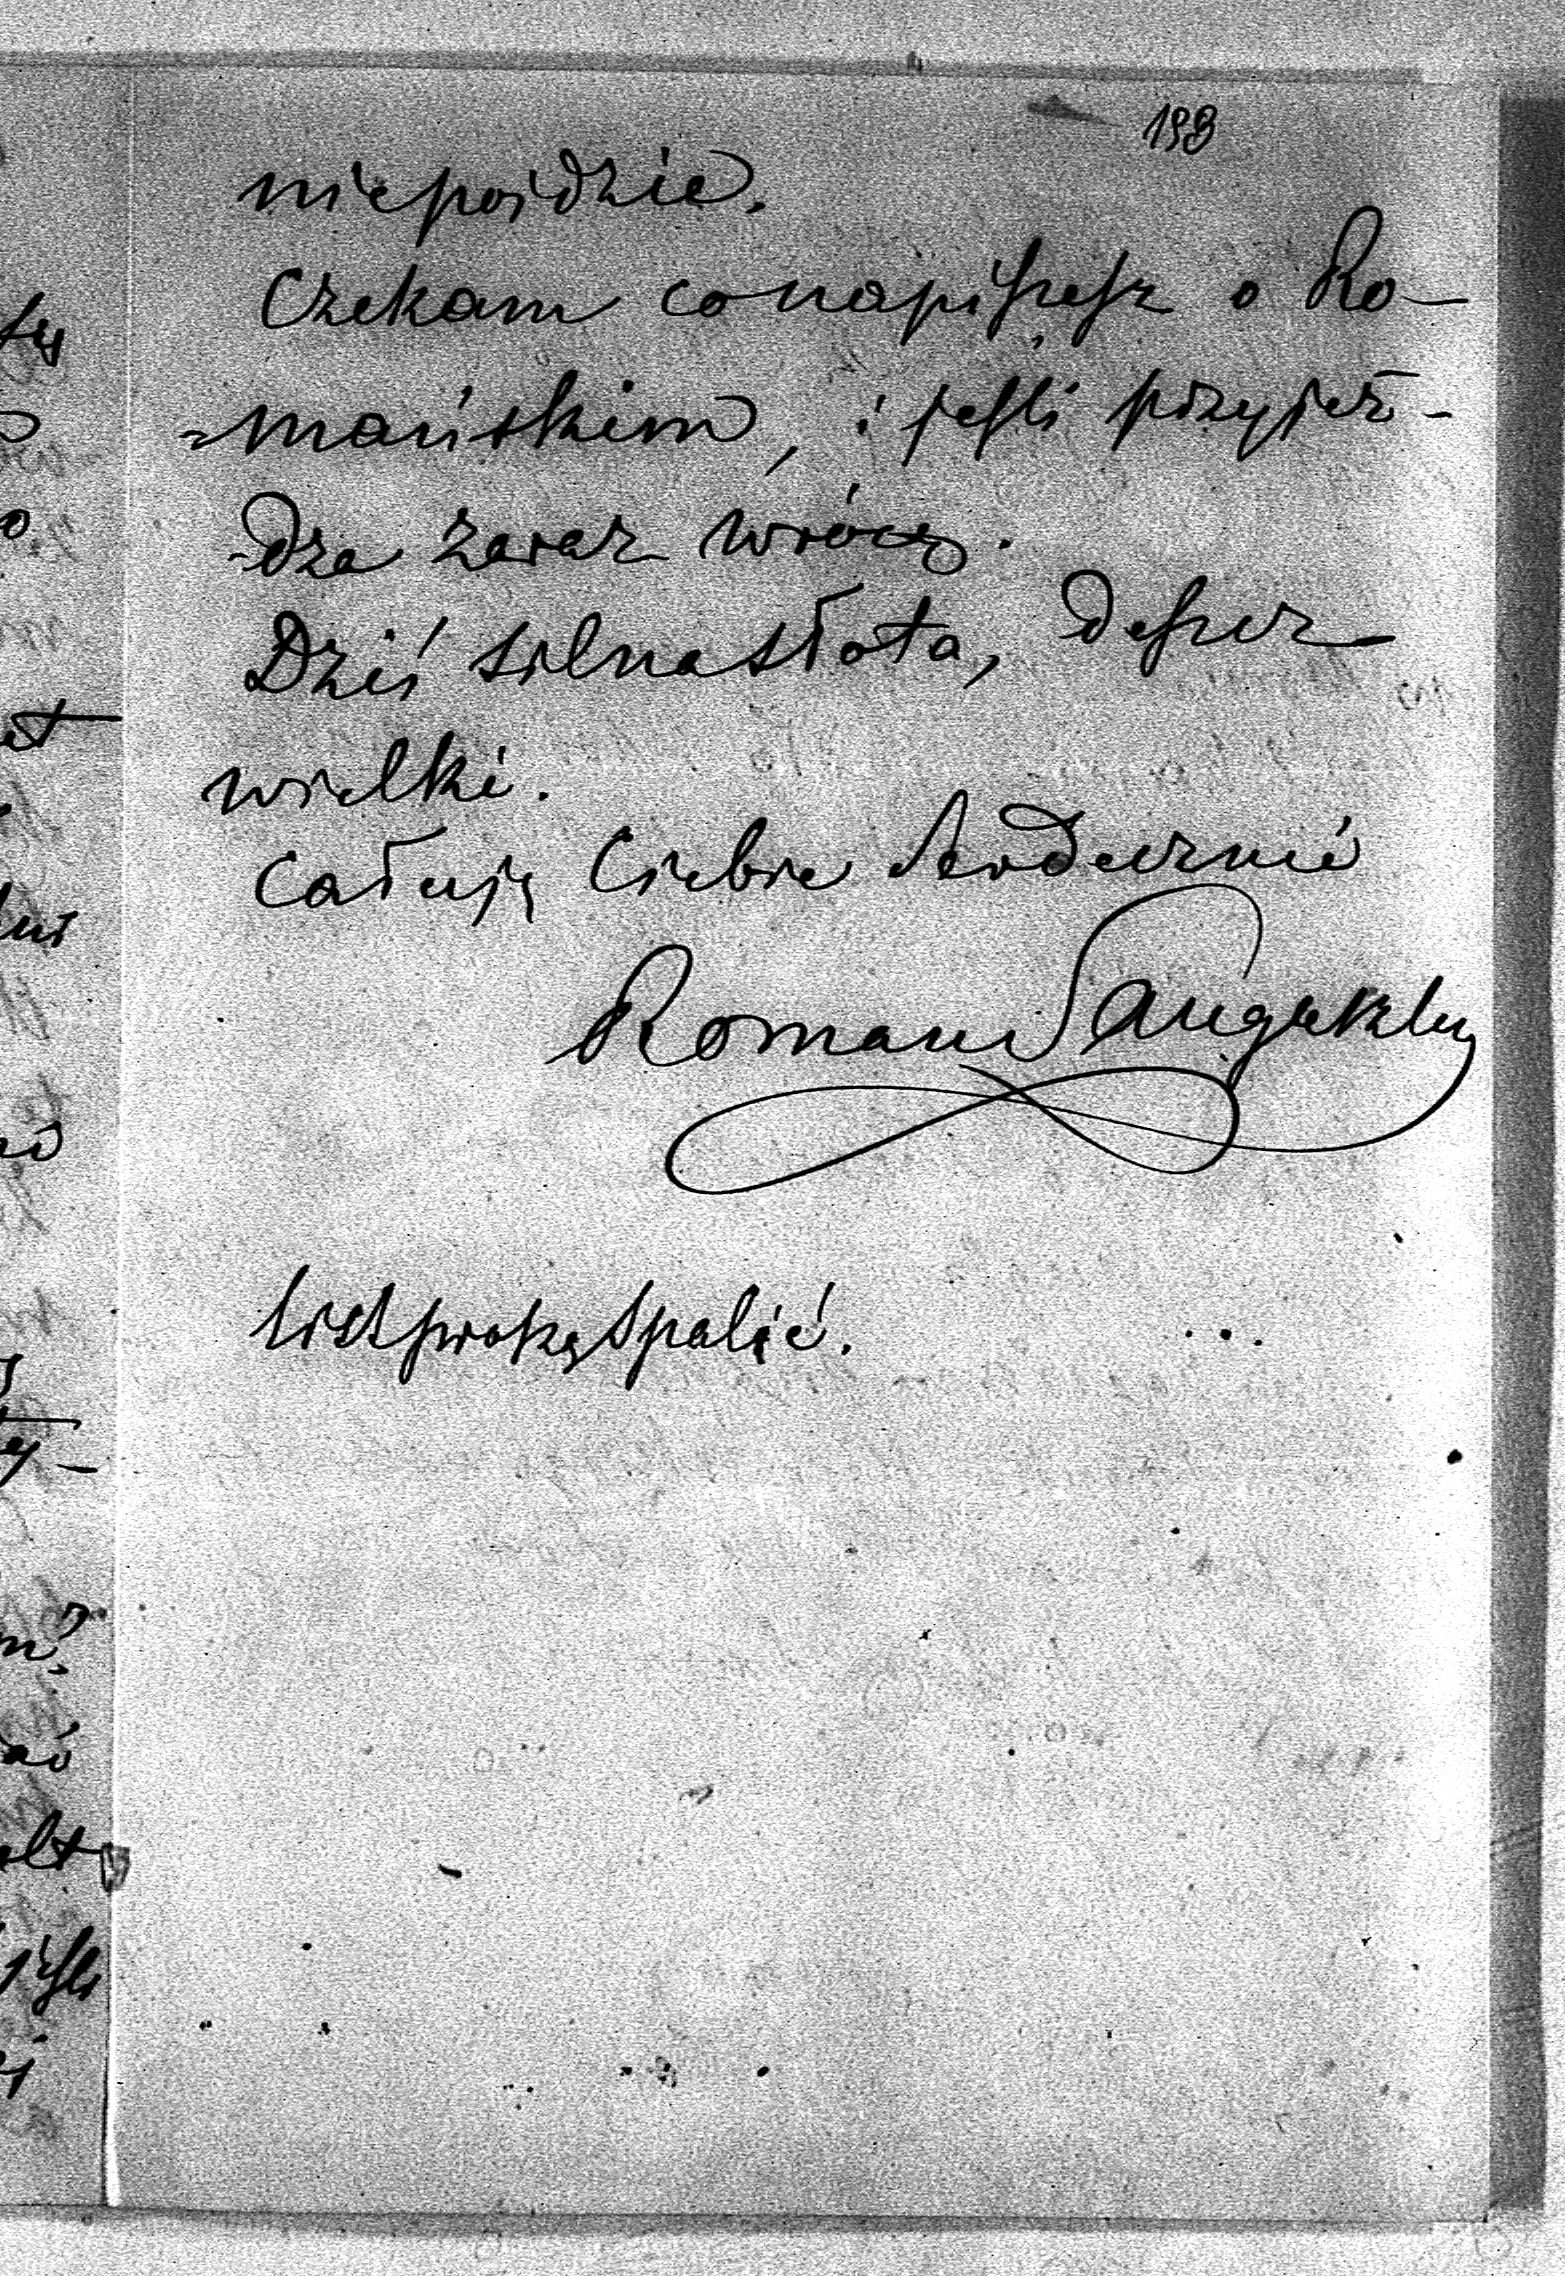 193
niepoidzie.
Czekam co napiszesz o Ro-
=mańskim, i jeśli przyjeż-
-dza zaraz wrócę.
Dziś silna słota, deszcz
wielki.
Całuję Ciebie Serdecznie
Roman Sanguszko
List proszę spalić.